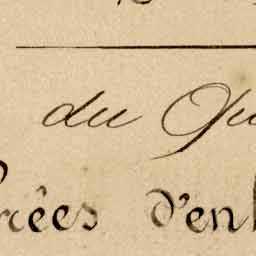 du Qu
rées d'en